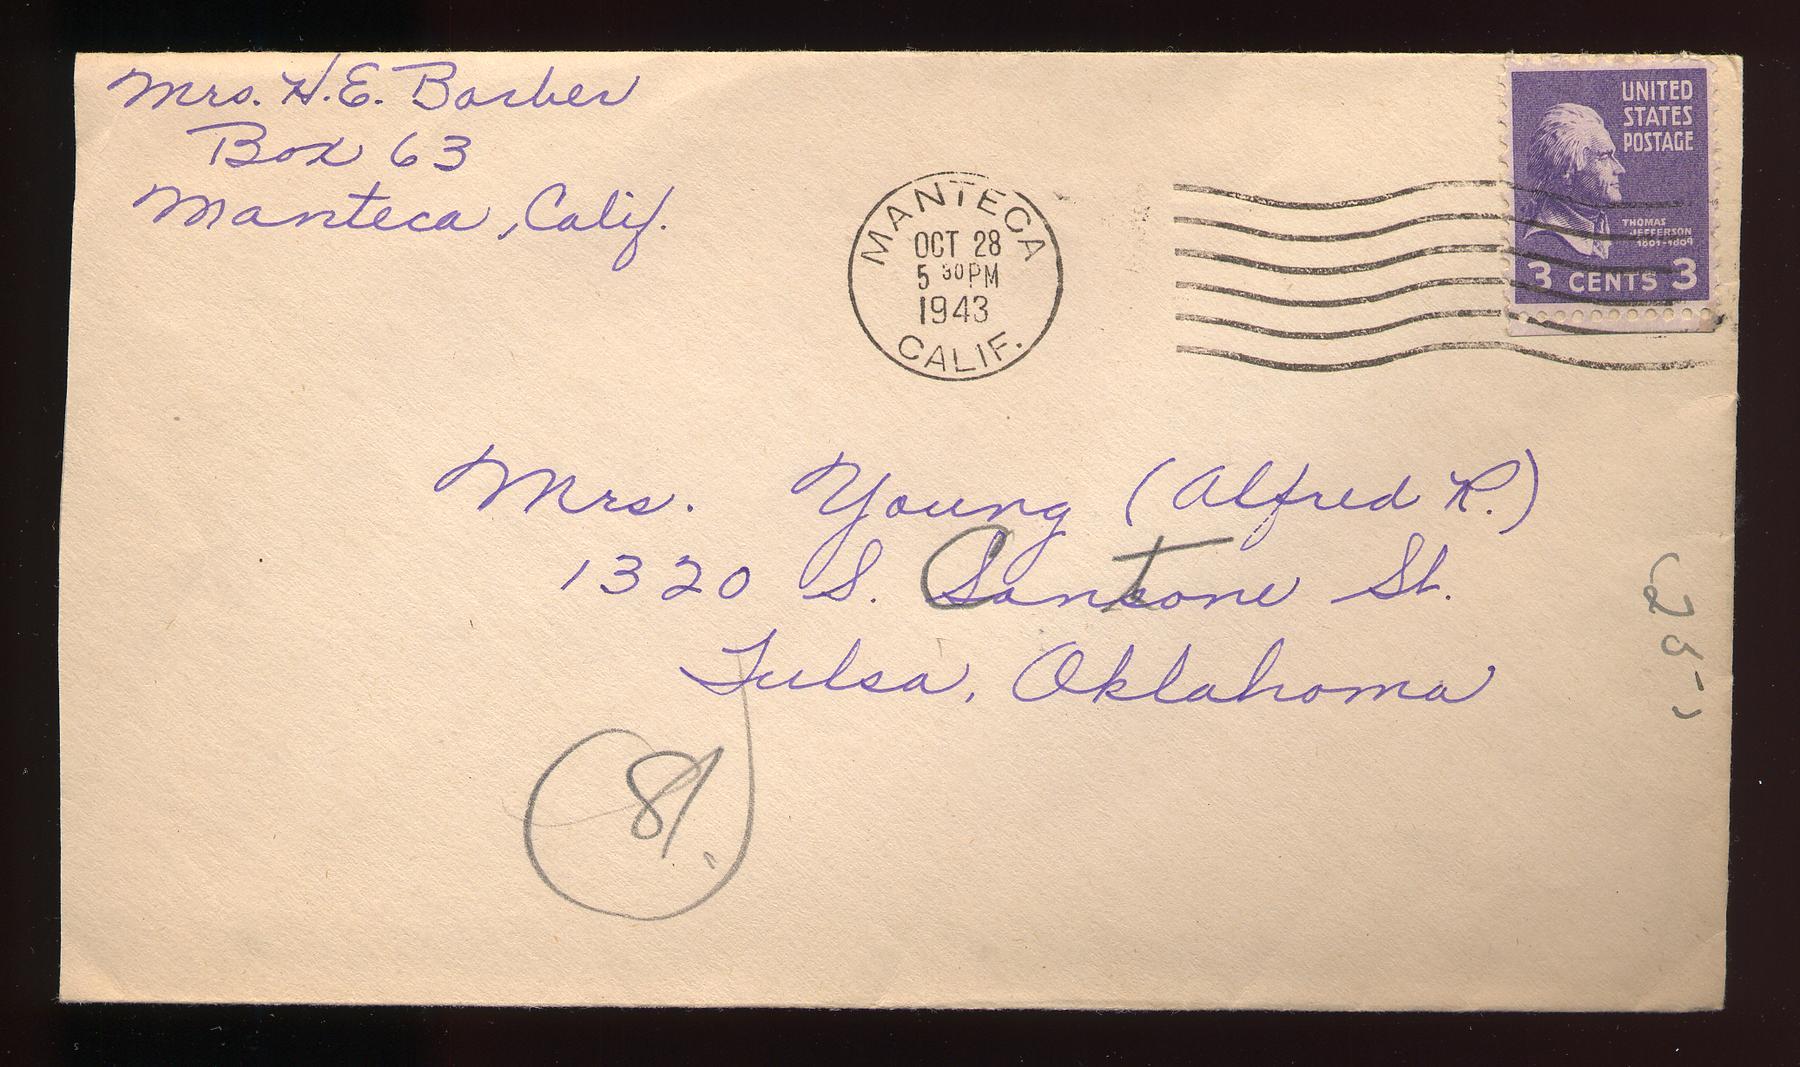 Mrs. H.E. Barber
Box 63
Manteca, Calif.
MANTECA
OCT 28
5 30 PM
1943
CALIF.
UNITED
STATES
POSTAGE
THOMAS
JEFFERSON
1801-1809
3 CENTS 3
Mrs. Young (Alfred R.)
1320 S. Sansone St.
C t
Tulsa, Oklahoma
81